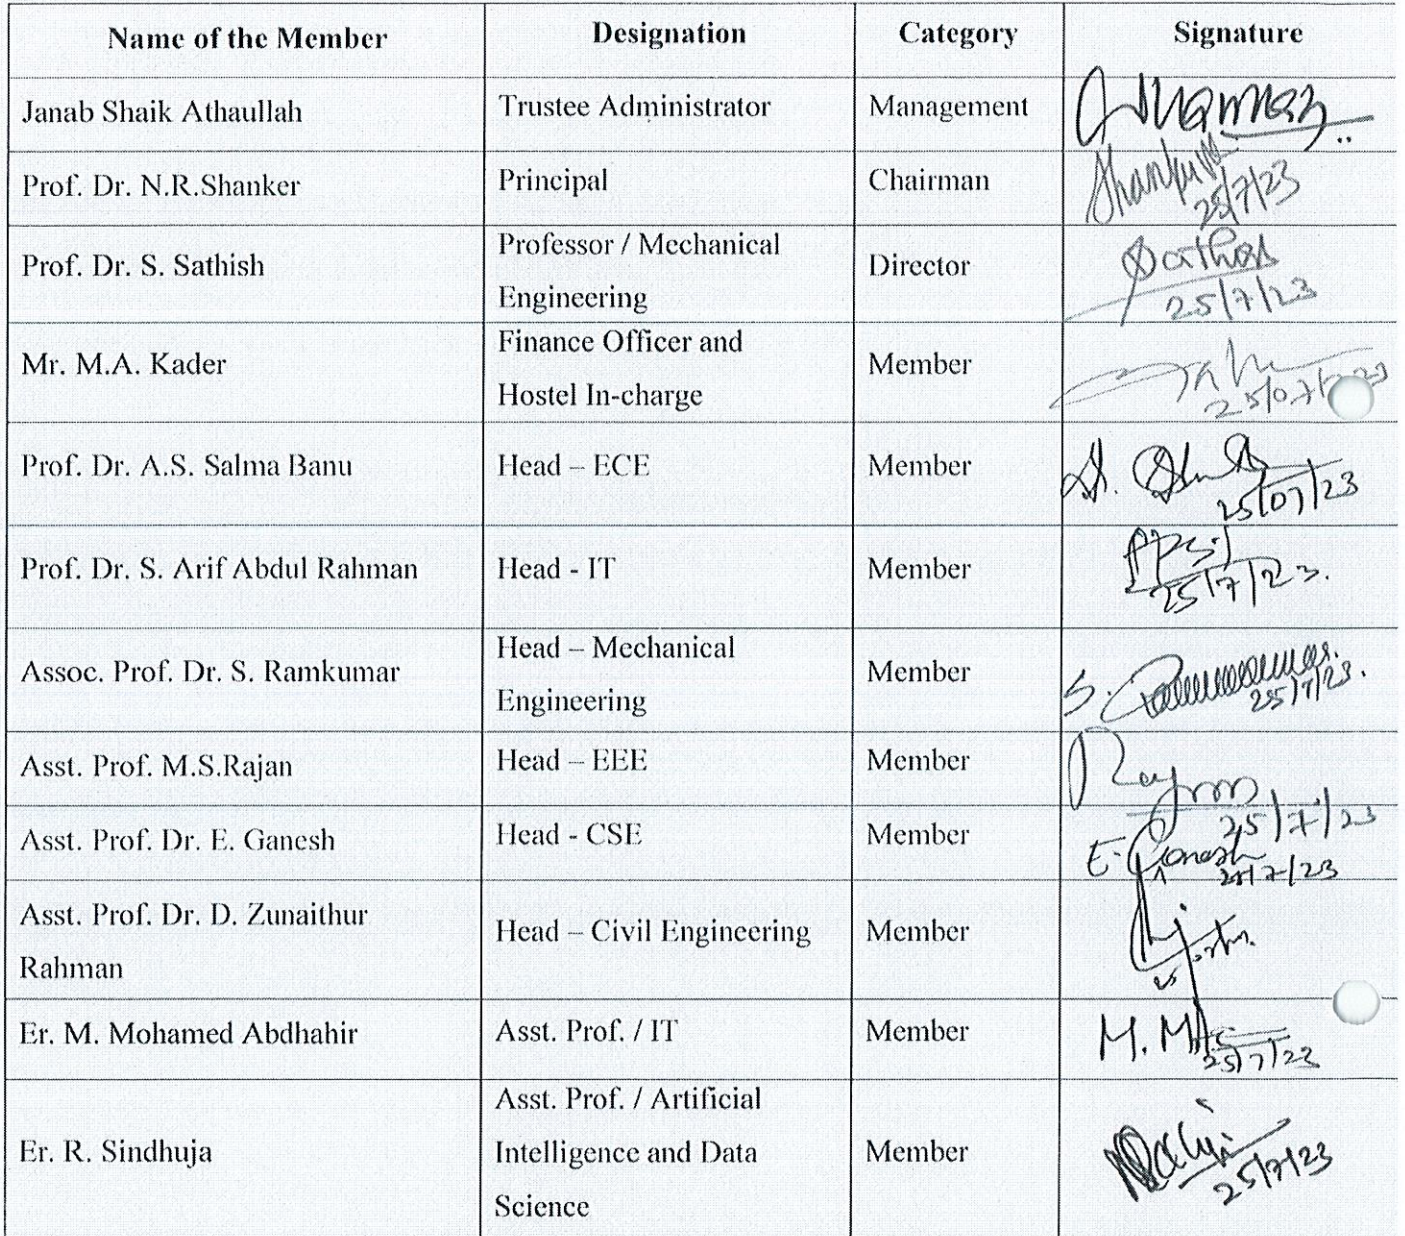 Name of the Member Designation Category Signature
Janab Shaik Athaullah Trustee Administrator Management
Prof. Dr. N.R.Shanker Principal Chairman
25/7/23
Prof. Dr. S. Sathish Professor / Mechanical Director
Engineering
25/7/23
Mr. M.A. Kader Finance Officer and Member
Hostel In-charge
Prof. Dr. A.S. Salma Banu Head – ECE Member
25/07/23
Prof. Dr. S. Arif Abdul Rahman Head - IT Member
25/7/23.
Assoc. Prof. Dr. S. Ramkumar Head – Mechanical Member
Engineering
25/7/23.
Asst. Prof. M.S.Rajan Head – EEE Member
25/7/23
Asst. Prof. Dr. E. Ganesh Head - CSE Member E. Ganesh
25/7/23
Asst. Prof. Dr. D. Zunaithur Head – Civil Engineering Member
Rahman
Er. M. Mohamed Abdhahir Asst. Prof. / IT Member
25/7/23
Er. R. Sindhuja Asst. Prof. / Artificial Member
Intelligence and Data
Science
25/7/23